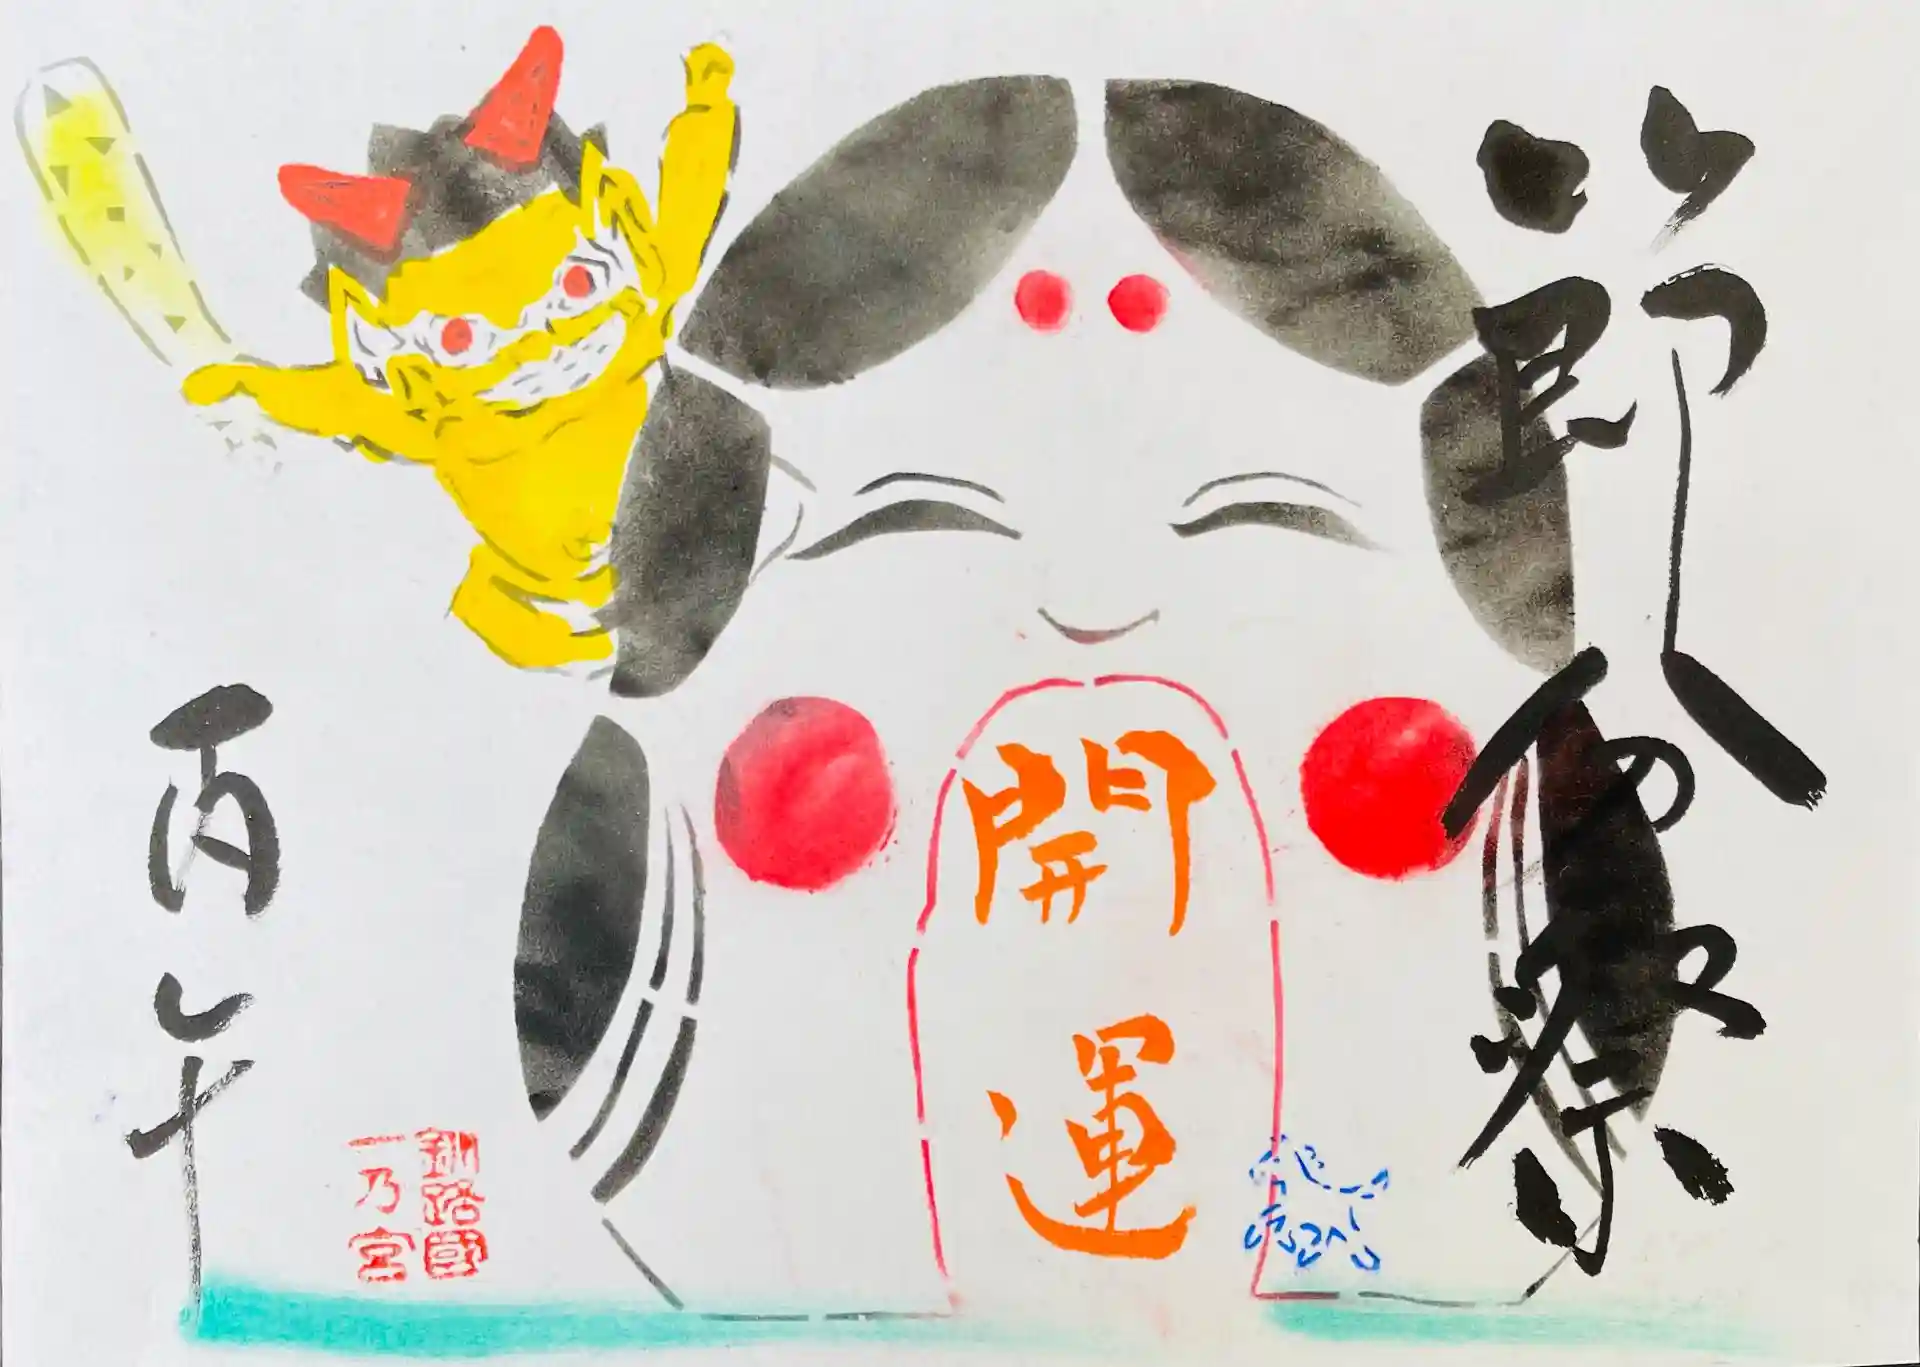 節分祭
開運
丙午
釧路國
一乃宮